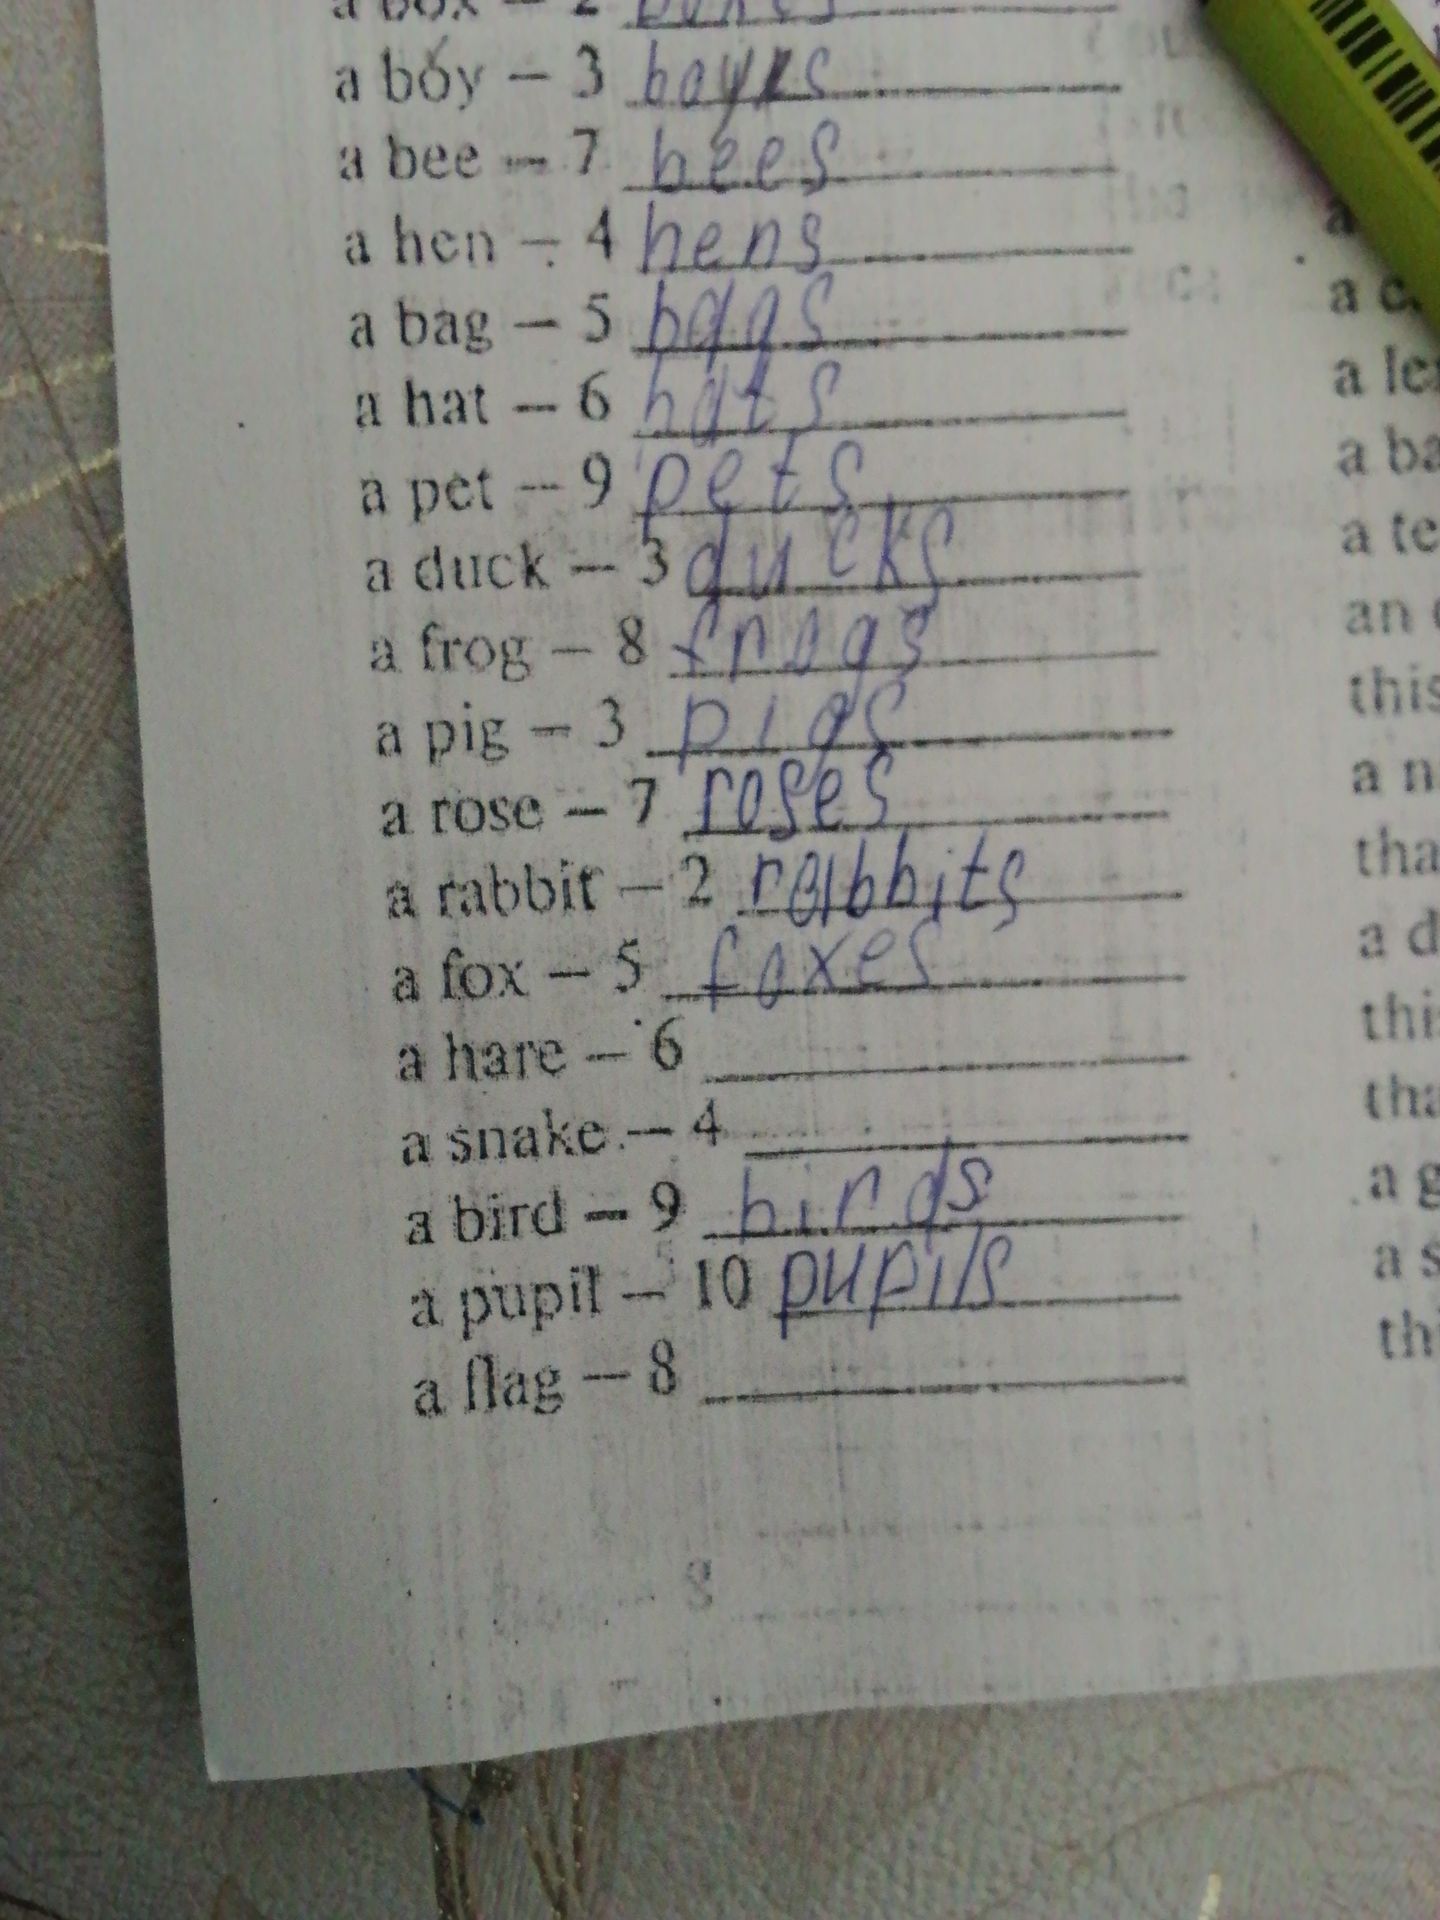 a box – 2 boxes
a boy – 3 boys
a bee – 7 bees
a hen – 4 hens
a bag – 5 bags
a hat – 6 hats
a pet – 9 pets
a duck – 3 ducks
a frog – 8 frogs
a pig – 3 pigs
a rose – 7 roses
a rabbit – 2 rabbits
a fox – 5 foxes
a hare – 6
a snake – 4
a bird – 9 birds
a pupil – 10 pupils
a flag – 8
a
a
a
a
a
an
this
a
a
a